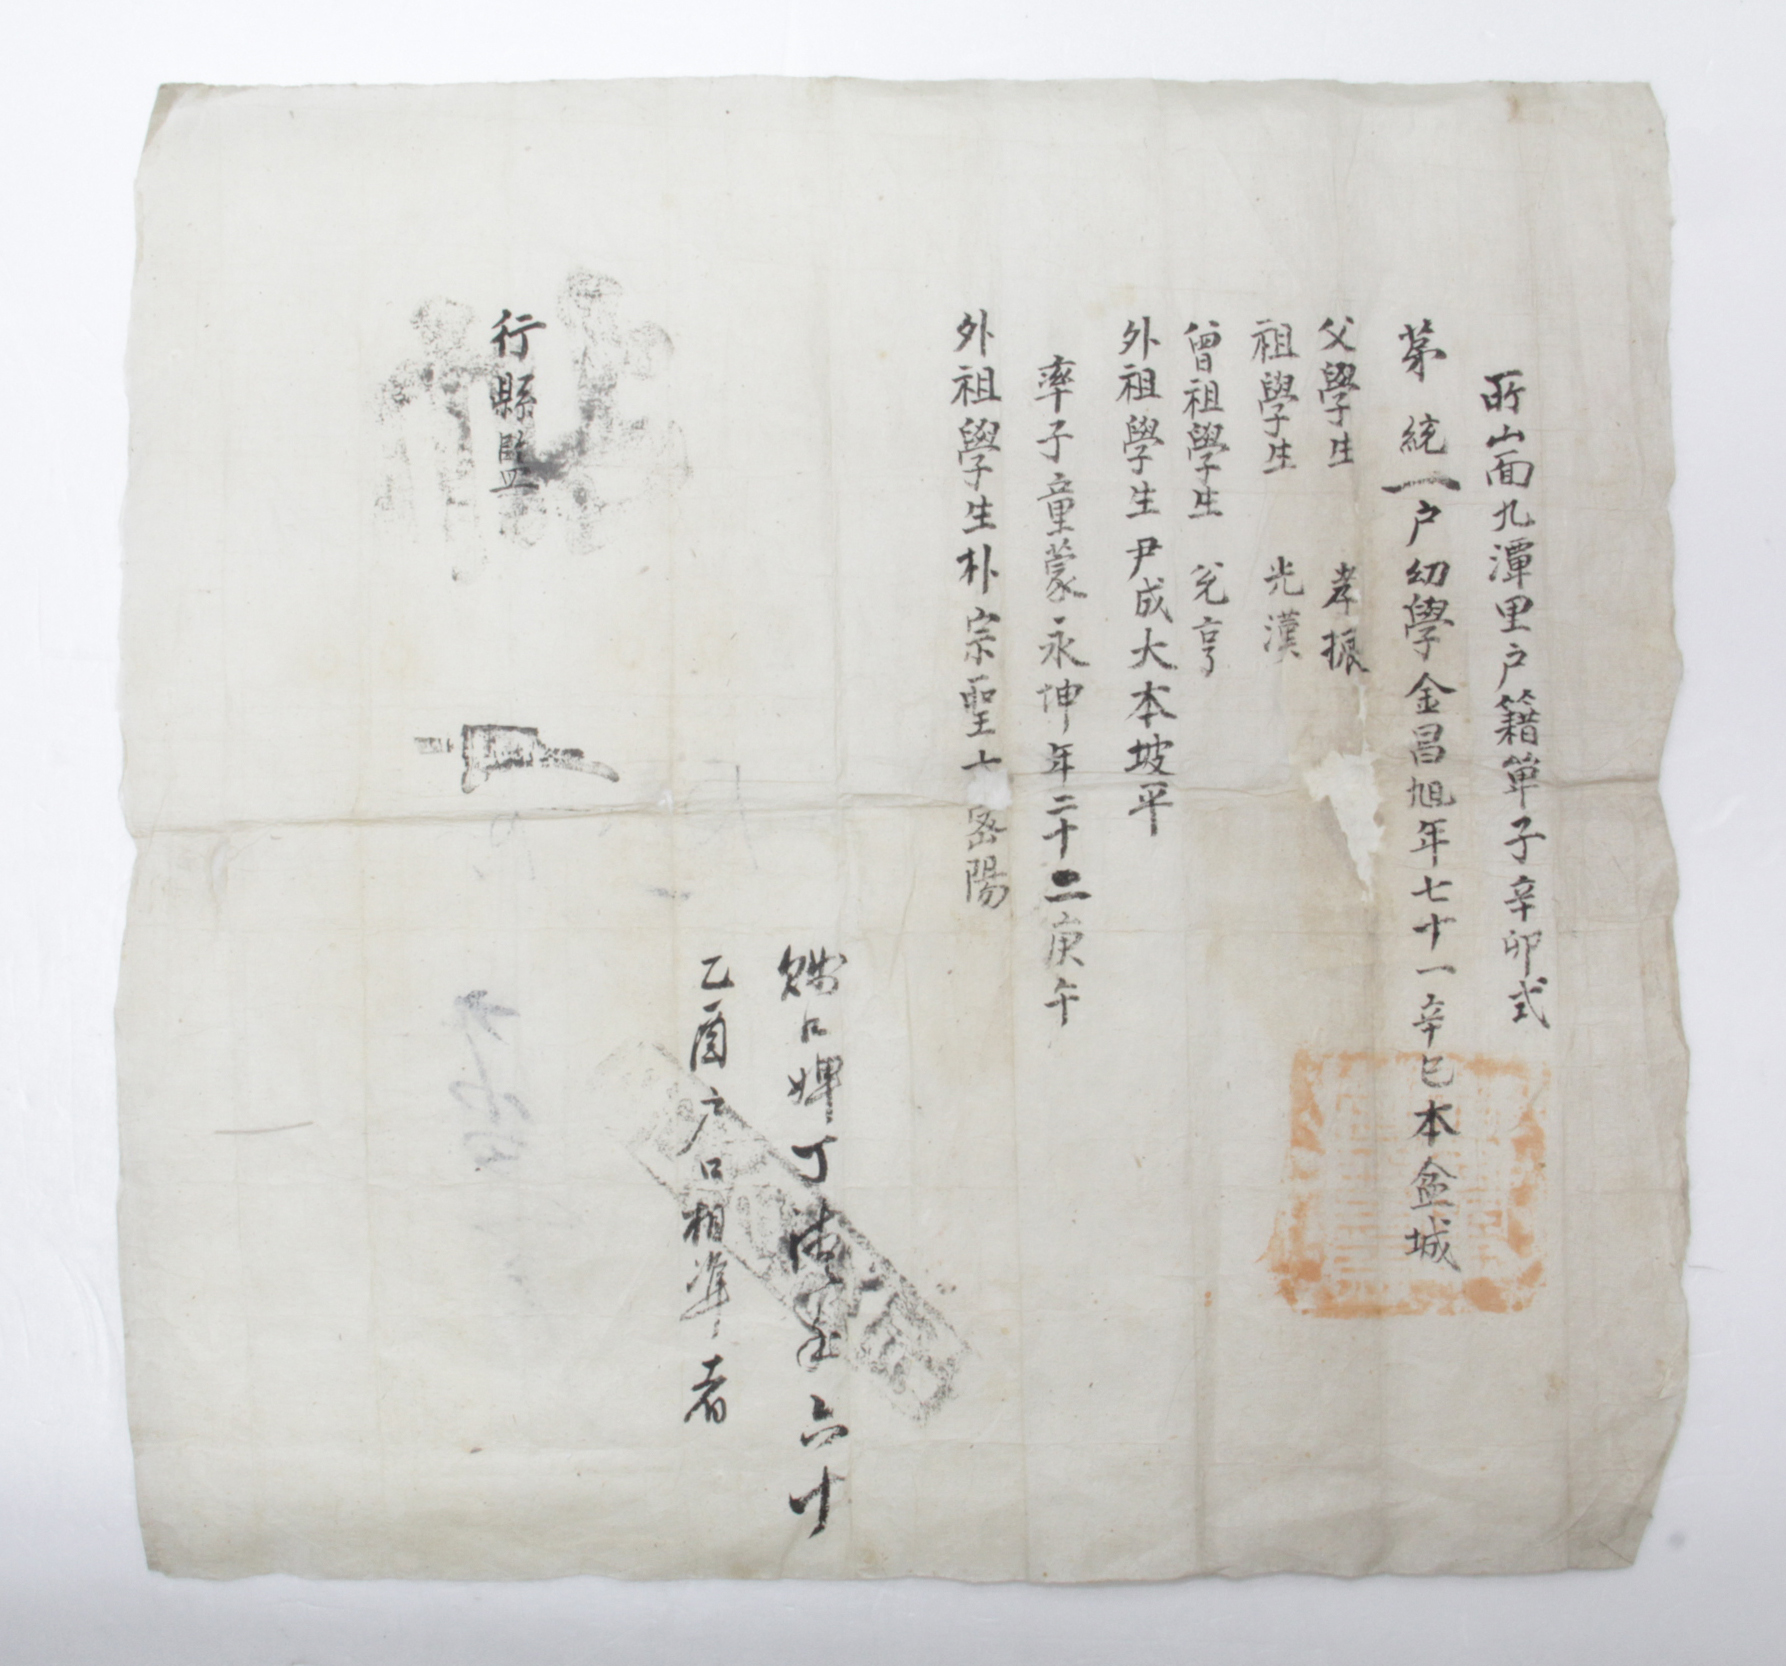 所山面九潭里户籍單子辛卯式
苐 統一户幼學金昌旭年七十一辛巳本金城
父學生 孝振
祖學生 光漢
曾祖學生 兊亨
外祖學生尹成大本坡平
率子童蒙永坤年二十二庚午
外祖學生朴宗聖 密陽
賤口婢丁 六十
乙酉户口相凖者
行縣監